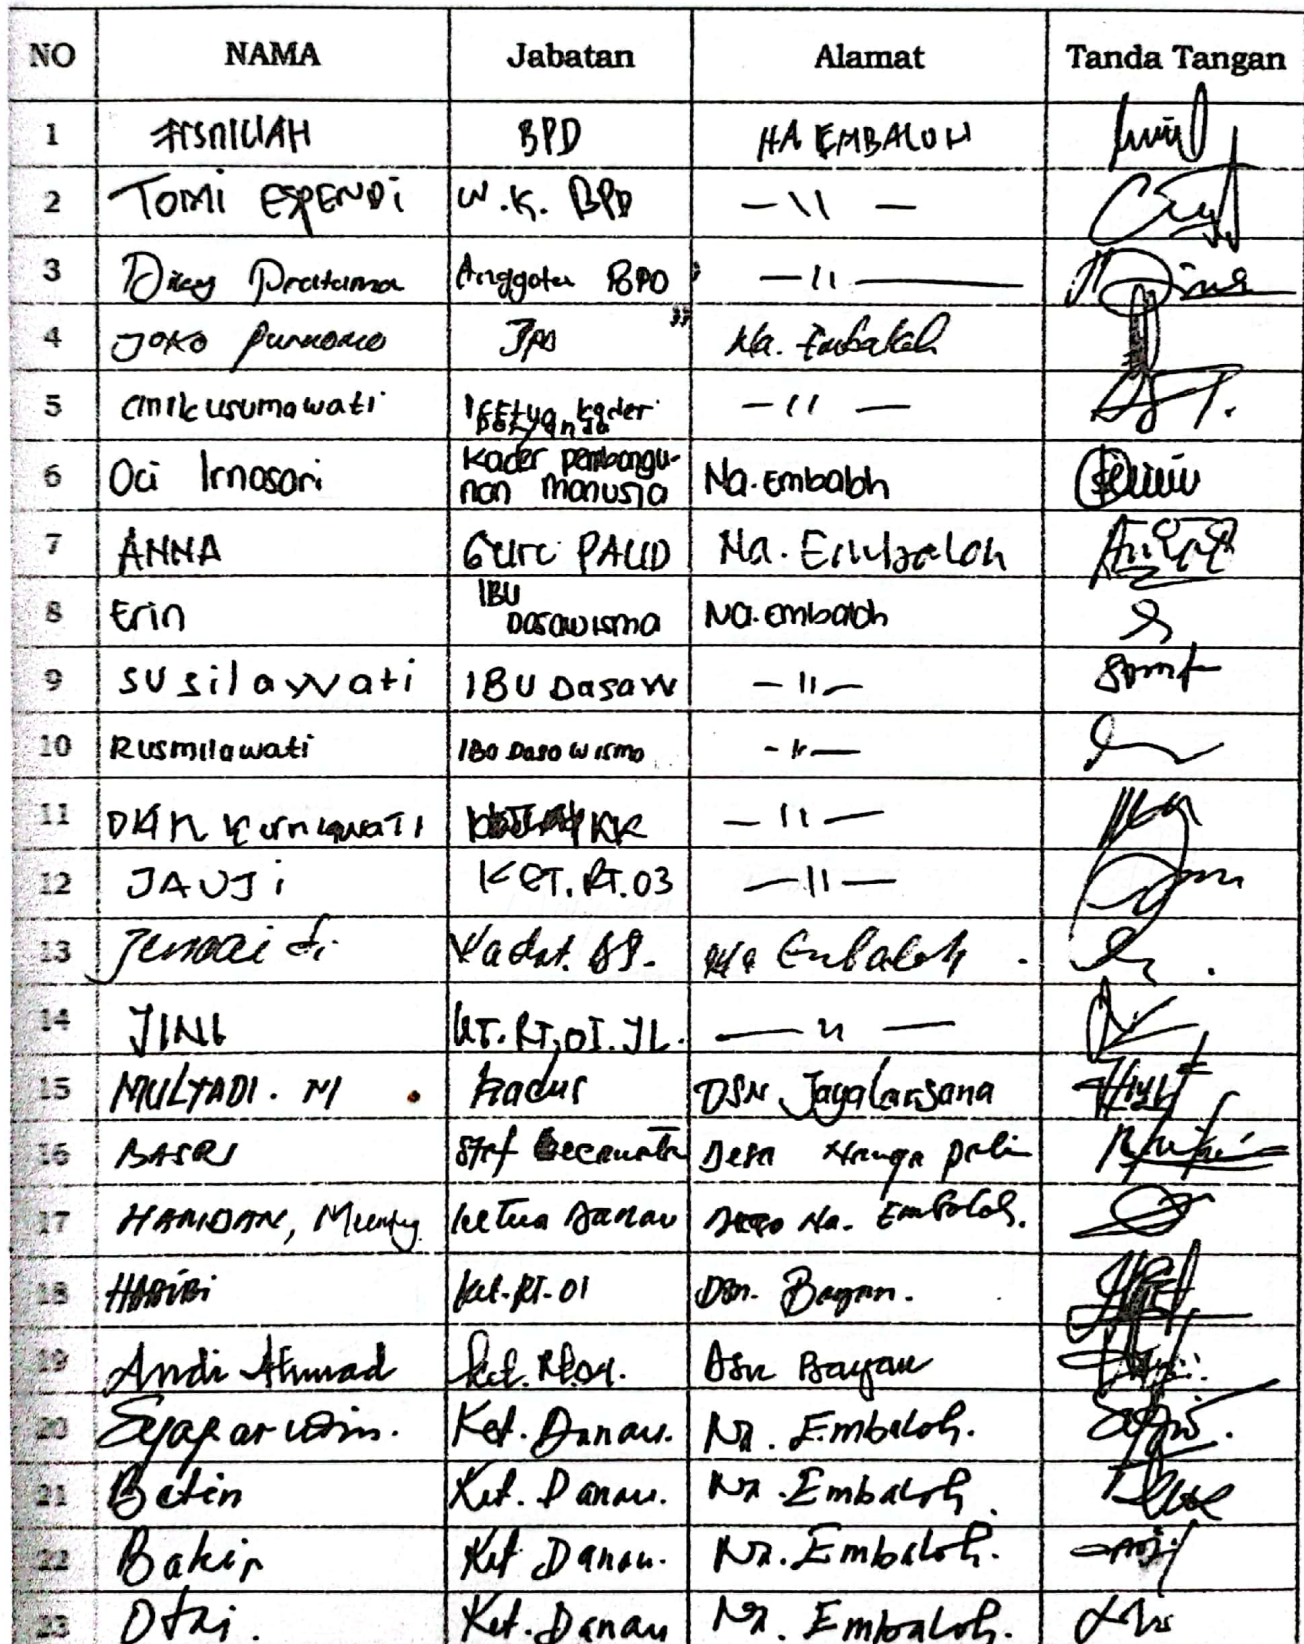 NO NAMA Jabatan Alamat Tanda Tangan
1 BPD NA EMBALOH
2 TOMI ESPENDi W.K. BPD — \\ —
3 Pratama Anggota BPD — \\ —
4 JOKO Purnomo BPD Na. Embaloh
5 cmikusumawati kader — \\ —
6 Oci Irnasari Kader pembangu-
nan manusia Na. Embaloh
7 ANNA Guru PAUD Na. Embaloh
8 Erin IBU
Dasawisma Na. Embaloh
9 SUsilawati IBU Dasaw — \\ —
10 Rusmilawati IBU Dasawisma — \\ —
11 DIAN kurniawati PKK — \\ —
12 JAUJi KET. RT. 03 — \\ —
13 Na Embaloh
14 JINI — \\ —
15 MULYADI. M kadus DSN Jayalarsana
16 BASRI Staf Desa Nanga
17 HAMDAN, ketua danau Na. Embaloh.
18 HABIBi ket. RT. 01 Dsn. Bayan.
19 Andi Ahmad ket. Dsn Bayan
20 Syaparudin. Ket. Danau. Na. Embaloh.
21 Betin Ket. Danau. Na. Embaloh.
22 Bakir Ket Danau. Na. Embaloh.
23 Ket. Danau Na. Embaloh.